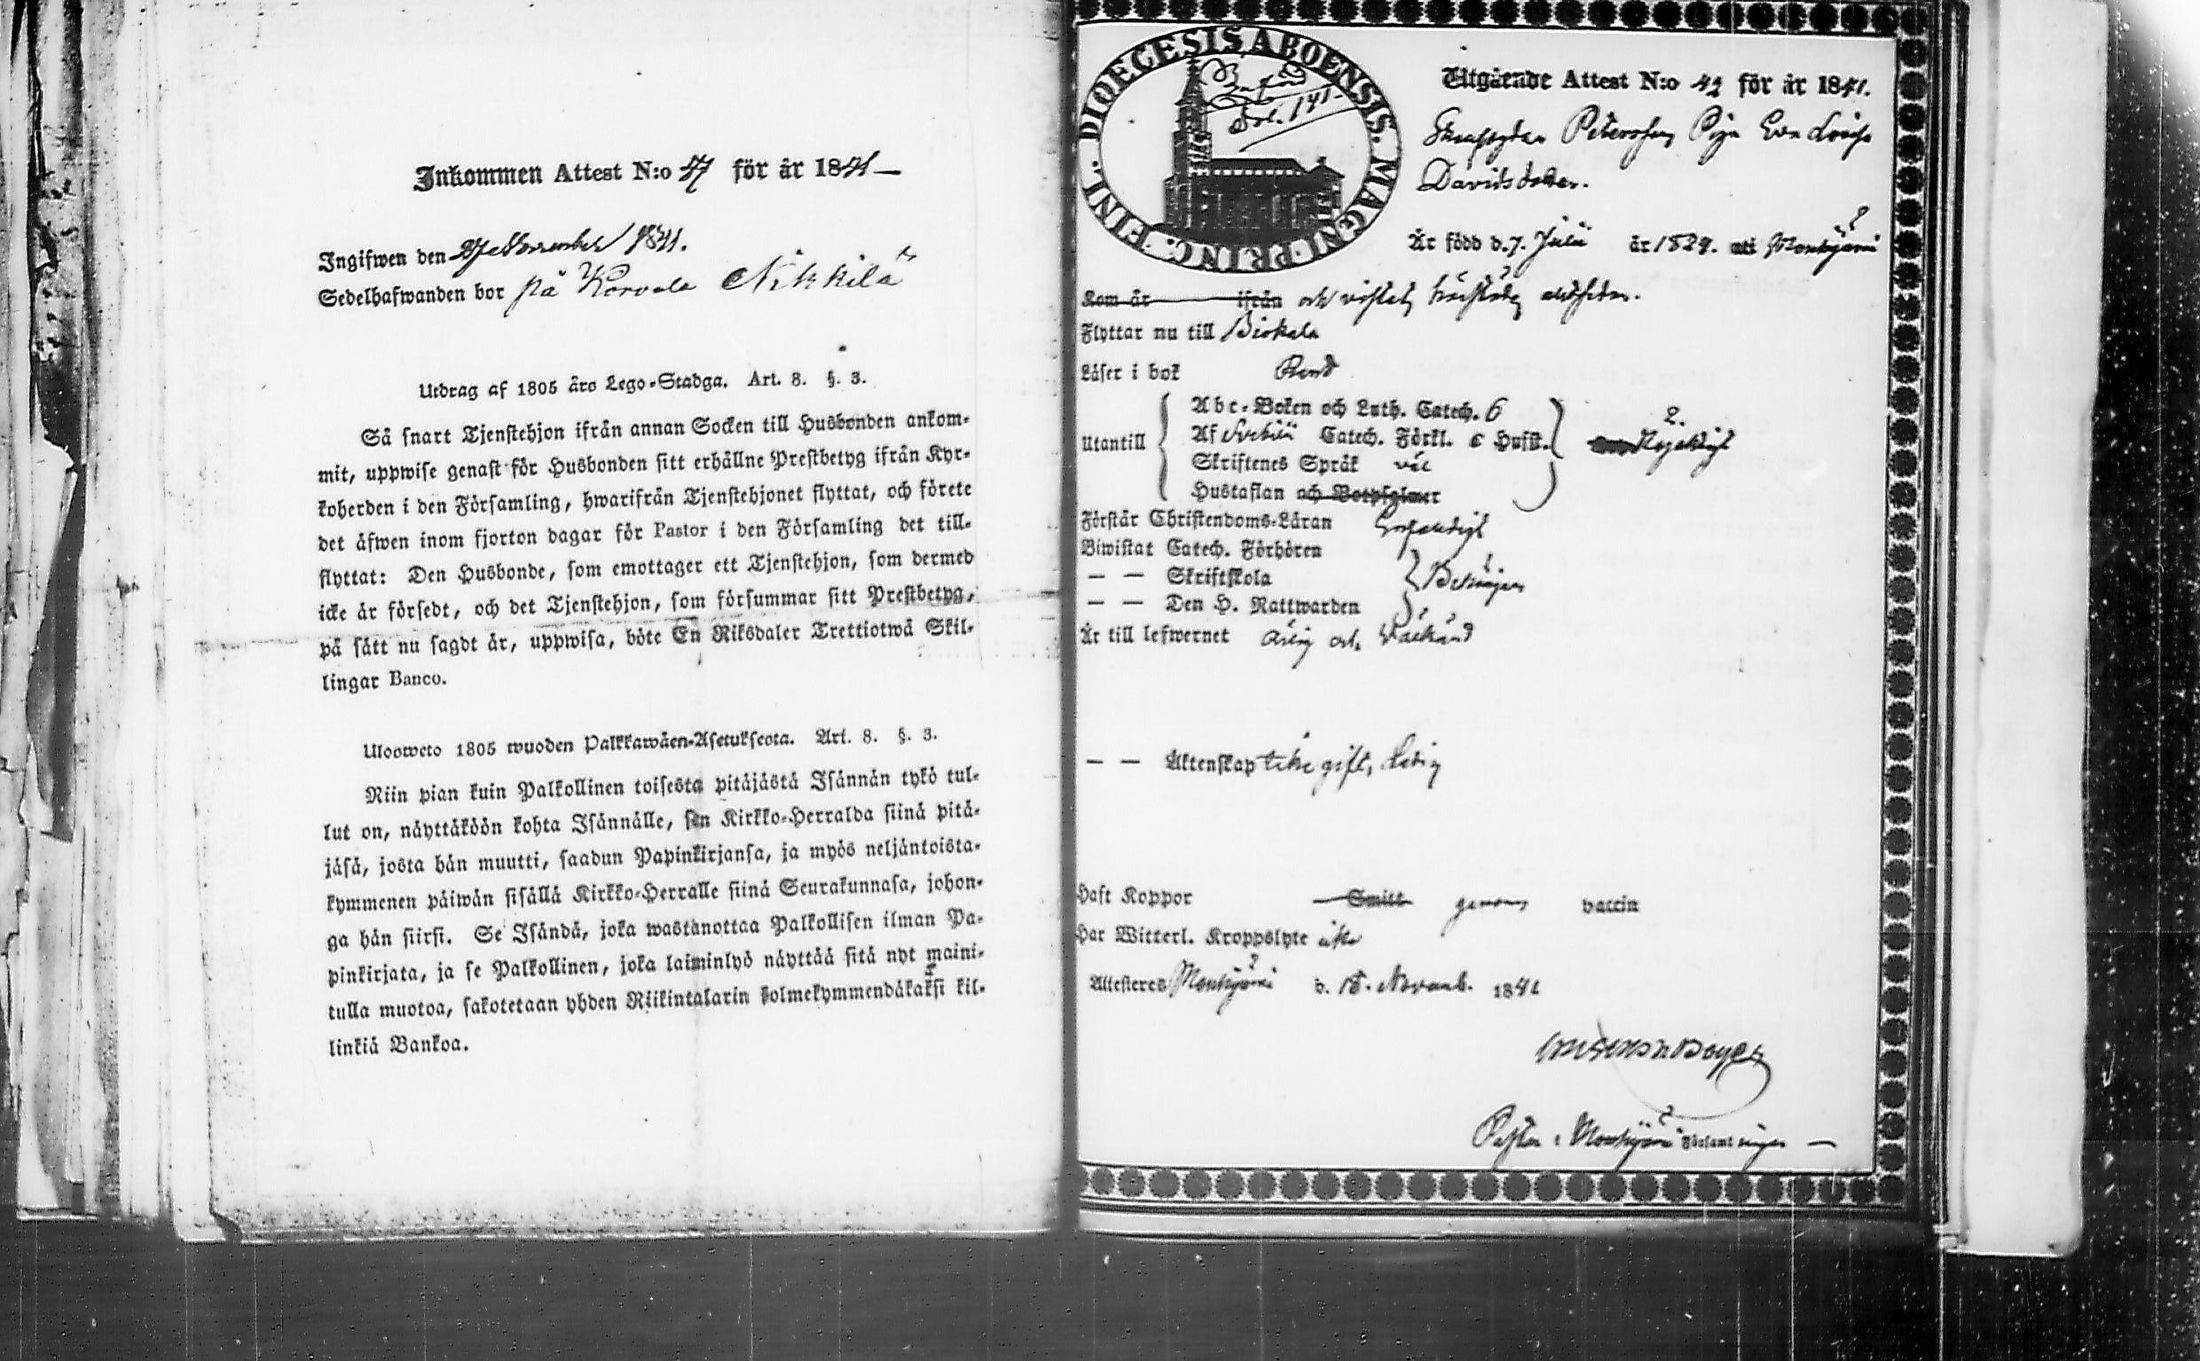 Inkommen Attest N:o 47 för år 1841 —
Ingifwen den 27 November 1841.
Sedelhafwanden bor på Korvola Nikkilä
Utdrag af 1805 års Lego-Stadga. Art. 8. §. 3.
Så snart Tjenstehjon ifrån annan Socken till Husbonden ankom-
mit, uppwise genast för Husbonden sitt erhållne Prestbetyg ifrån Kyr-
koherden i den Församling, hwarifrån Tjenstehjonet flyttat, och förete
det äfwen inom fjorton dagar för Pastor i den Församling det till-
flyttat: Den Husbonde, som emottager ett Tjenstehjon, som dermed
icke är försedt, och det Tjenstehjon, som försummar sitt Prestbetyg,
på sätt nu sagdt är, uppwisa, böte En Riksdaler Trettiotwå Skil-
lingar Banco.
Uloosweto 1805 wuoden Palkkawäen-Asetuksesta. Art. 8. §. 3.
Niin pian kuin Palkollinen toisesta pitäjästä Isännän tykö tul-
lut on, näyttäköön kohta Isännälle, sen Kirkko-Herralda siinä pitä-
jäsä, josta hän muutti, saadun Papinkirjansa, ja myös neljäntoista-
kymmenen päiwän sisällä Kirkko-Herralle siinä Seurakunnasa, johon-
ga hän siirsi. Se Isändä, joka wastanottaa Palkollisen ilman Pa-
pinkirjata, ja se Palkollinen, joka laiminlyö näyttää sitä nyt maini-
tulla muotoa, sakotetaan yhden Riikintalarin kolmekymmendäkaksi kil-
linkiä Bankoa.
DIOECESIS ABOENSIS. MAGNI PRINC. FINL.
Fol. 141.
Utgående Attest N:o 42 för år 1841.
Petersson Piga Eva Lovisa
Davidsdotter.
Är född d. 7. Julii år 1824. uti Mouhijärvi
Kom år ifrån och vistats härstädes
Flyttar nu till Birkala
Läser i bok Rent
Utantill
Abc-Boken och Luth. Catech. 6
Af Svebilii Catech. Förkl. o Husst.
Skriftenes Språk väl
Hustaflan och Botpsalmer
Nöjaktigt
Förstår Christendoms-Läran Enfaldigt
Biwistat Catech. Förhören
— — Skriftskola
— — Den H. Nattwarden
Är till lefwernet ärlig och välkänd
— — Äktenskap icke gift, Ledig
Haft Koppor Smitt genom vaccin
Har Witterl. Kroppslyte icke
Attesteres Mouhijärvi d. 18. Novemb. 1841
Pastor i Mouhijärvi Församlingar —